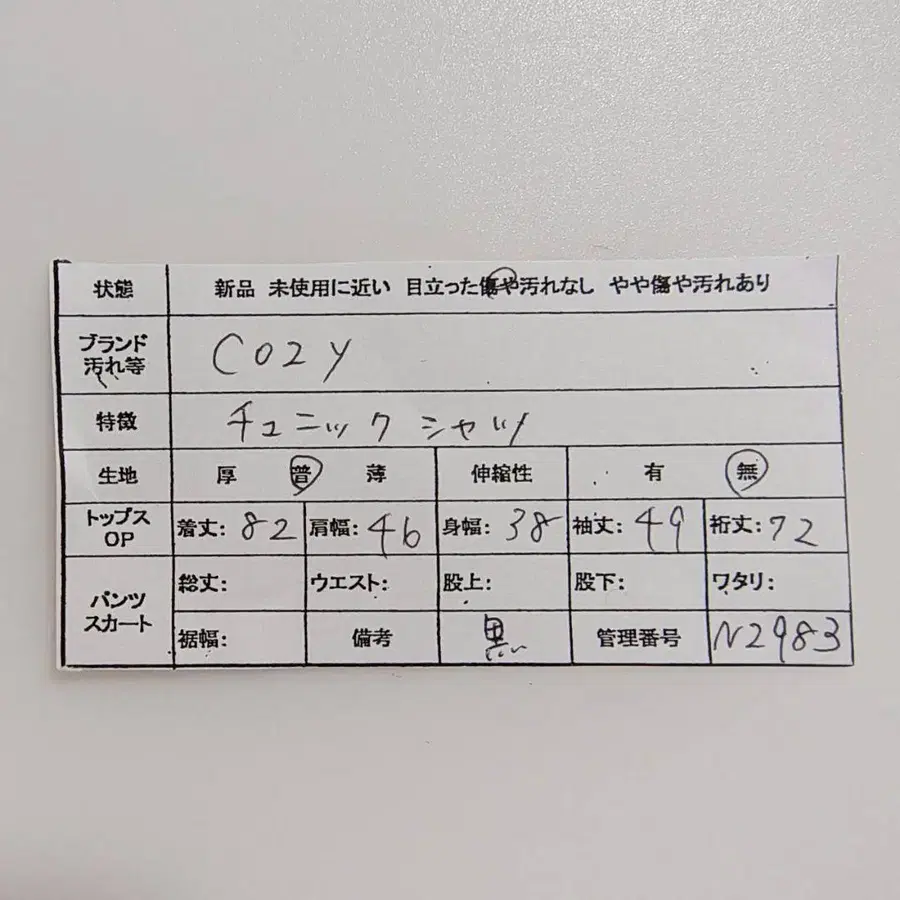 状態 新品 未使用に近い 目立った傷や汚れなし やや傷や汚れあり
ブランド
汚れ等 COZY
特徴 チュニックシャツ
生地 厚 普 薄 伸縮性 有 無
トップス
OP 着丈: 82 肩幅: 46 身幅: 38 袖丈: 49 裄丈: 72
パンツ
スカート 総丈: ウエスト: 股上: 股下: ワタリ:
裾幅: 備考 黒 管理番号 N2983